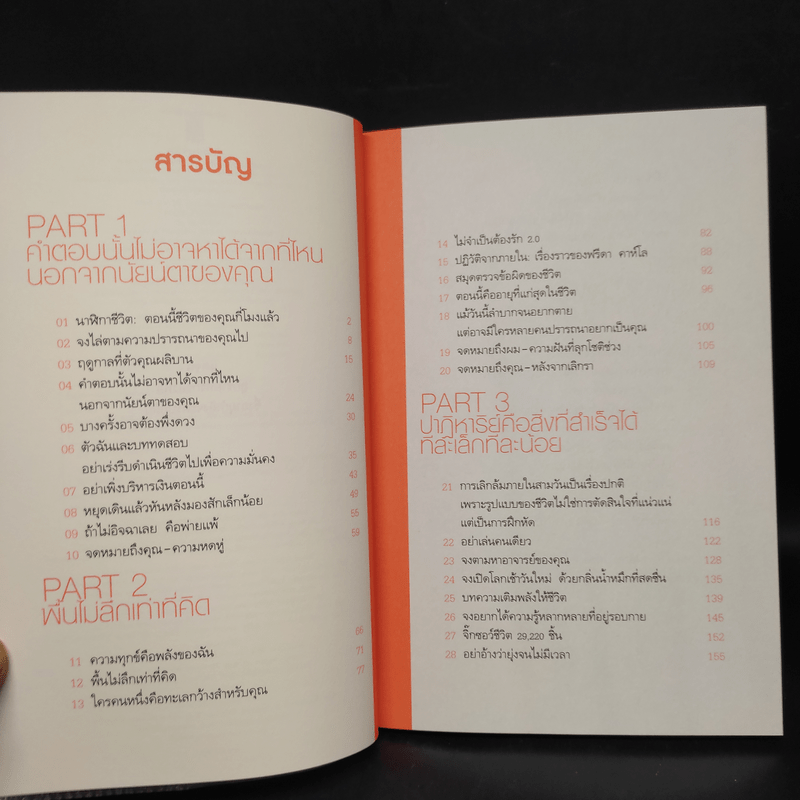 สารบัญ
PART 1
คำตอบนั้นไม่อาจหาได้จากที่ไหน
นอกจากนัยน์ตาของคุณ
01 นาฬิกาชีวิต: ตอนนี้ชีวิตของคุณกี่โมงแล้ว 2
02 จงไล่ตามความปรารถนาของคุณไป 8
03 ฤดูกาลที่ตัวคุณผลิบาน 15
04 คำตอบนั้นไม่อาจหาได้จากที่ไหน
นอกจากนัยน์ตาของคุณ 24
05 บางครั้งอาจต้องพึ่งดวง 30
06 ตัวฉันและบททดสอบ
อย่าเร่งรีบดำเนินชีวิตไปเพื่อความมั่นคง 35
07 อย่าเพิ่งบริหารเงินตอนนี้ 43
08 หยุดเดินแล้วหันหลังมองสักเล็กน้อย 49
09 ถ้าไม่อิจฉาเลย คือพ่ายแพ้ 55
10 จดหมายถึงคุณ-ความหดหู่ 59
PART 2
พื้นไม่ลึกเท่าที่คิด
11 ความทุกข์คือพลังของฉัน 66
12 พื้นไม่ลึกเท่าที่คิด 71
13 ใครคนหนึ่งคือทะเลกว้างสำหรับคุณ 77
14 ไม่จำเป็นต้องรัก 2.0 82
15 ปฏิวัติจากภายใน: เรื่องราวของฟรีดา คาห์โล 88
16 สมุดตรวจข้อผิดของชีวิต 92
17 ตอนนี้คืออายุที่แก่สุดในชีวิต 96
18 แม้วันนี้ลำบากจนอยากตาย
แต่อาจมีใครหลายคนปรารถนาอยากเป็นคุณ 100
19 จดหมายถึงผม-ความฝันที่ลุกโชติช่วง 105
20 จดหมายถึงคุณ-หลังจากเลิกรา 109
PART 3
ปาฏิหาริย์คือสิ่งที่สำเร็จได้
ทีละเล็กทีละน้อย
21 การเลิกล้มภายในสามวันเป็นเรื่องปกติ
เพราะรูปแบบของชีวิตไม่ใช่การตัดสินใจที่แน่วแน่
แต่เป็นการฝึกหัด 116
22 อย่าเล่นคนเดียว 122
23 จงตามหาอาจารย์ของคุณ 128
24 จงเปิดโลกเช้าวันใหม่ ด้วยกลิ่นน้ำหมึกที่สดชื่น 135
25 บทความเติมพลังให้ชีวิต 139
26 จงอยากได้ความรู้หลากหลายที่อยู่รอบกาย 145
27 จิ๊กซอว์ชีวิต 29,220 ชิ้น 152
28 อย่าอ้างว่ายุ่งจนไม่มีเวลา 155